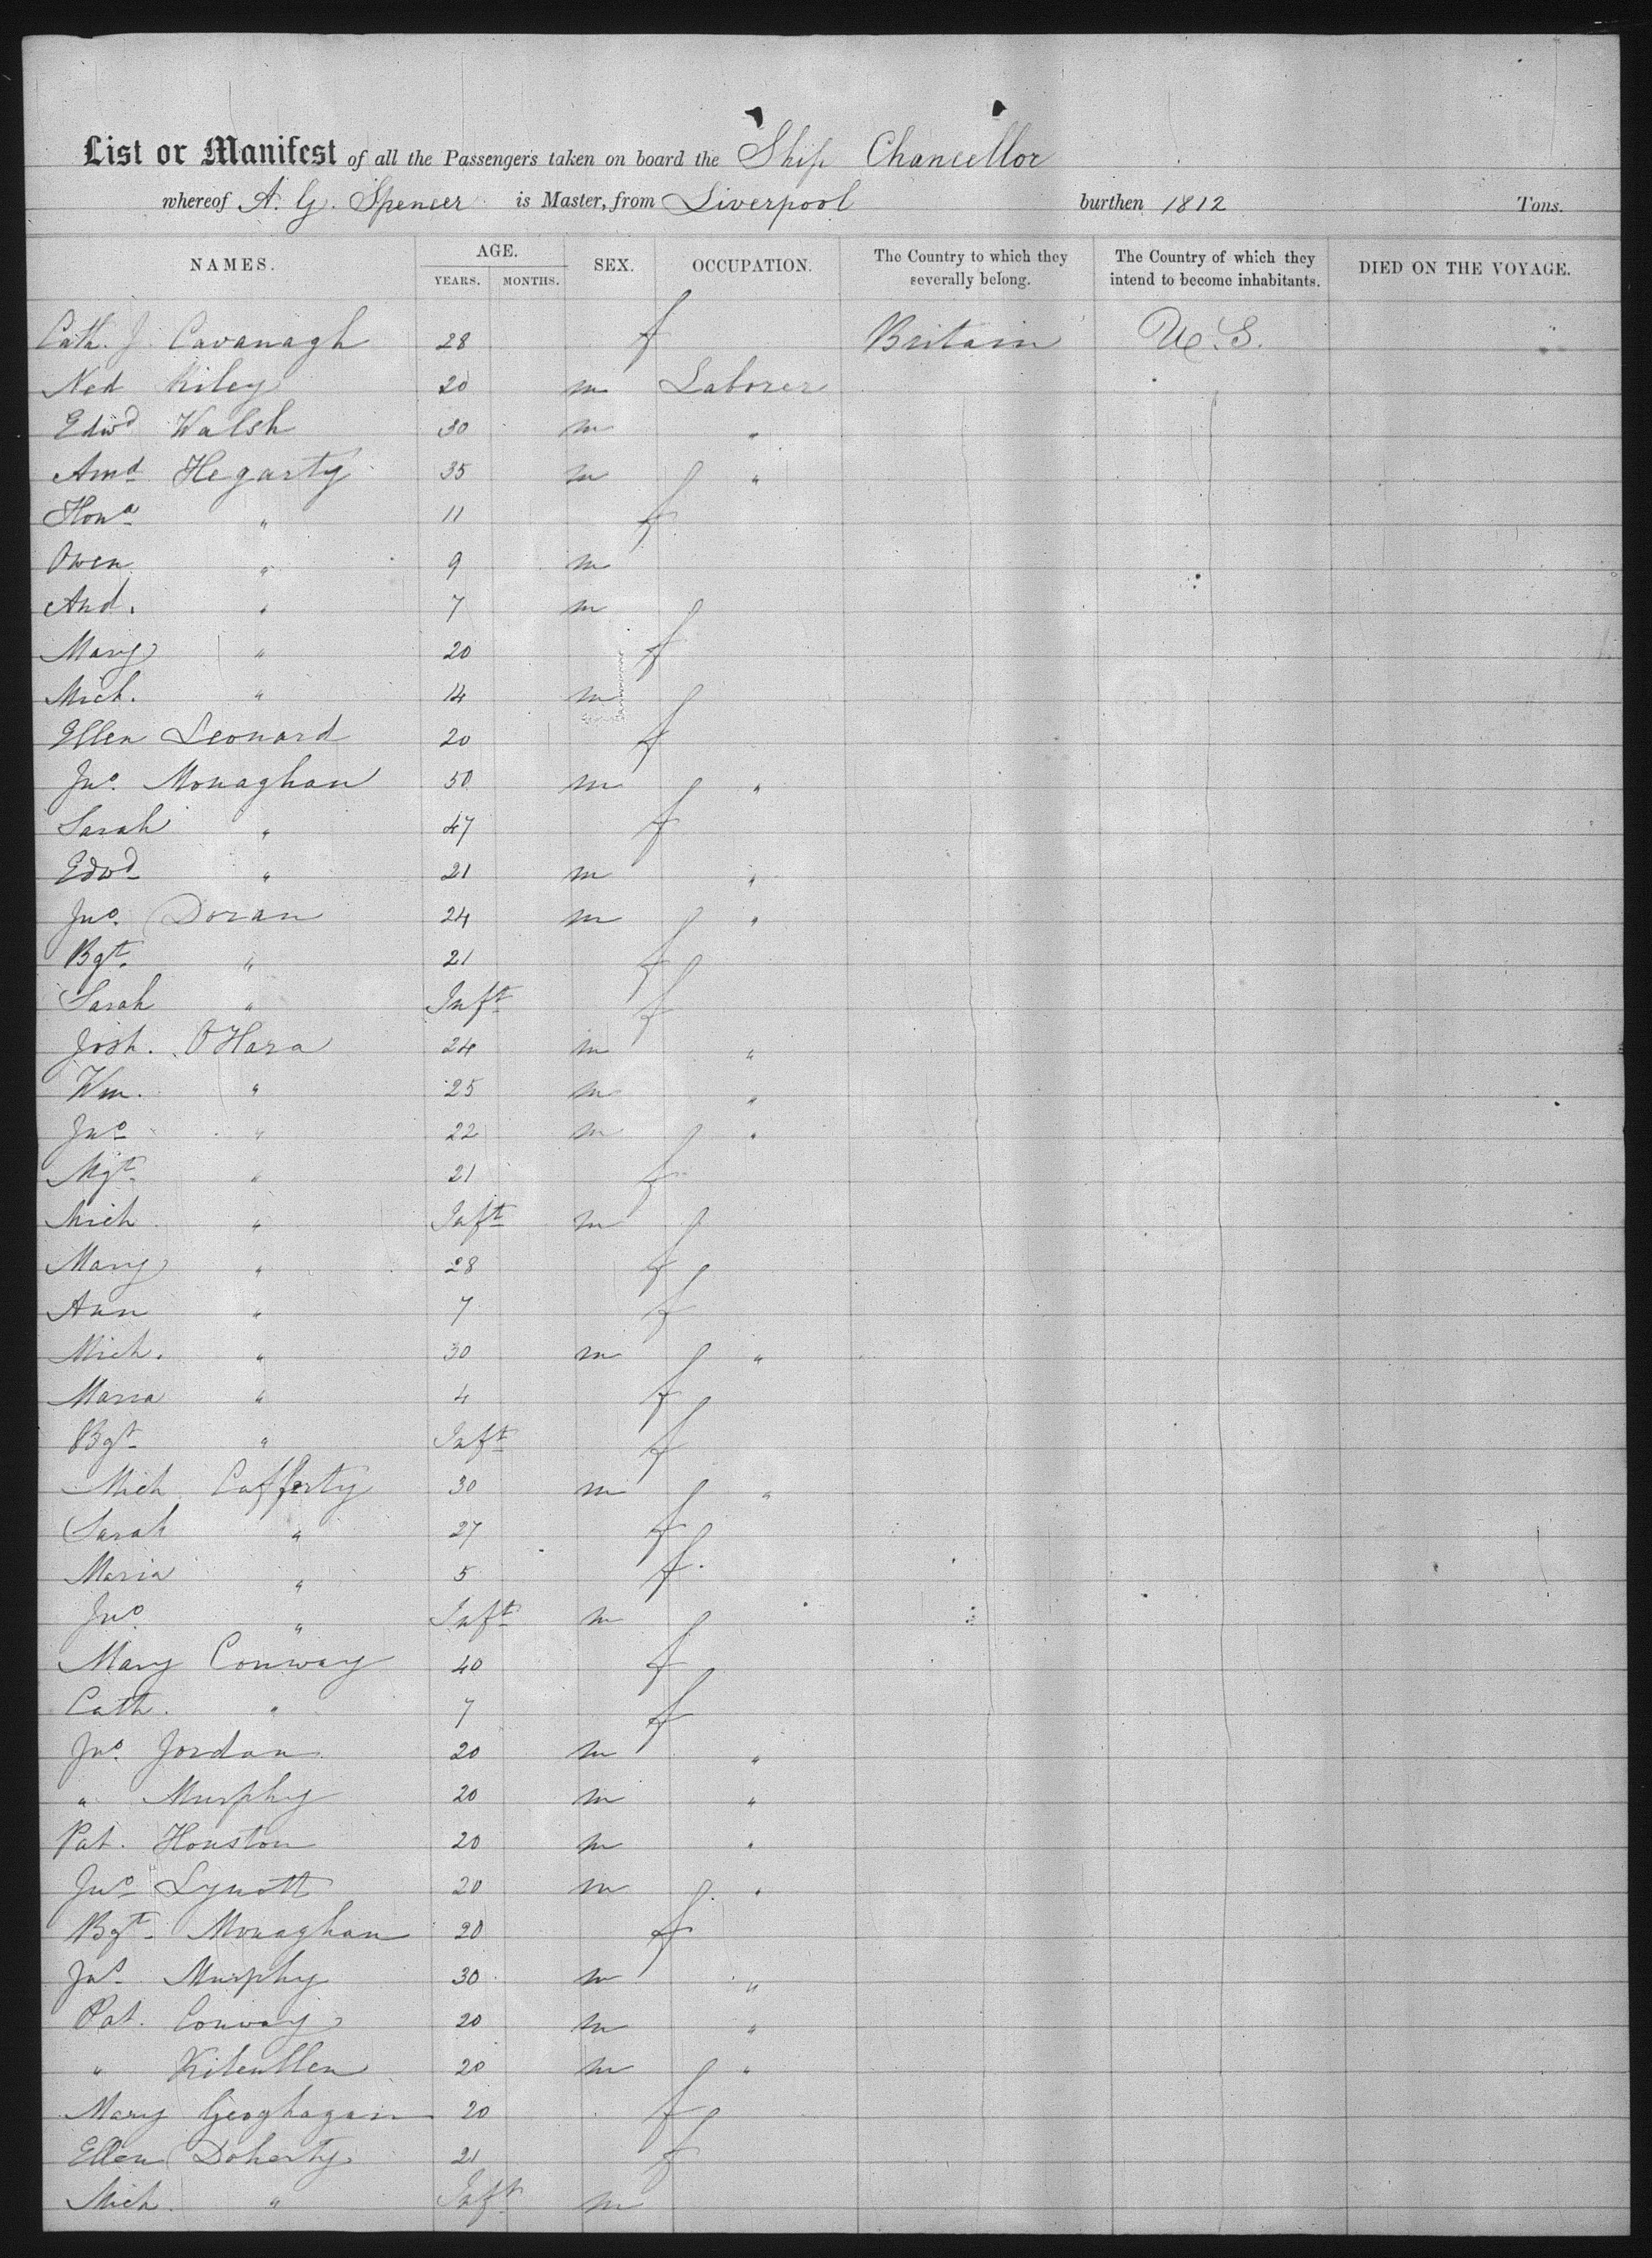 List or Manifest of all the Passengers taken on board the Ship Chancellor
whereof A. G. Spencer is Master, from Liverpool burthen 1812 Tons.
NAMES. AGE. YEARS. MONTHS. SEX. OCCUPATION. The Country to which they severally belong. The Country of which they intend to become inhabitants. DIED ON THE VOYAGE.
Cath. J. Cavanagh 28 f Britain U.S.
Ned Kiley 20 m Laborer
Edwd Walsh 30 m "
Amd Hegarty 35 m "
Hona " 11 f
Owen " 9 m
And. " 7 m
Mary " 20 f
Mich. " 14 m
Ellen Leonard 20 f
Jno. Monaghan 50 m "
Sarah " 47 f
Edwd " 21 m "
Jno. Doran 24 m "
Bgt. " 21 f
Sarah " Inft f
Josh. O'Hara 24 m "
Wm. " 25 m "
Jno " 22 m "
Mgt. " 21 f
Mich " Inft m
Mary " 28 f
Ann " 7 f
Mich. " 30 m "
Maria " 4 f
Bgt " Inft f
Mich Cafferty 30 m "
Sarah " 27 f
Maria " 5 f
Jno. " Inft m
Mary Conway 40 f
Cath. " 7 f
Jno. Jordan 20 m "
" Murphy 20 m "
Pat. Houston 20 m "
Jno Lynott 20 m "
Bgt. Monaghan 20 f
Jas. Murphy 30 m "
Pat. Conway 20 m "
" Kilcullen 20 m "
Mary Geoghagan 20 f
Ellen Doherty 21 f
Mich. " Inft m